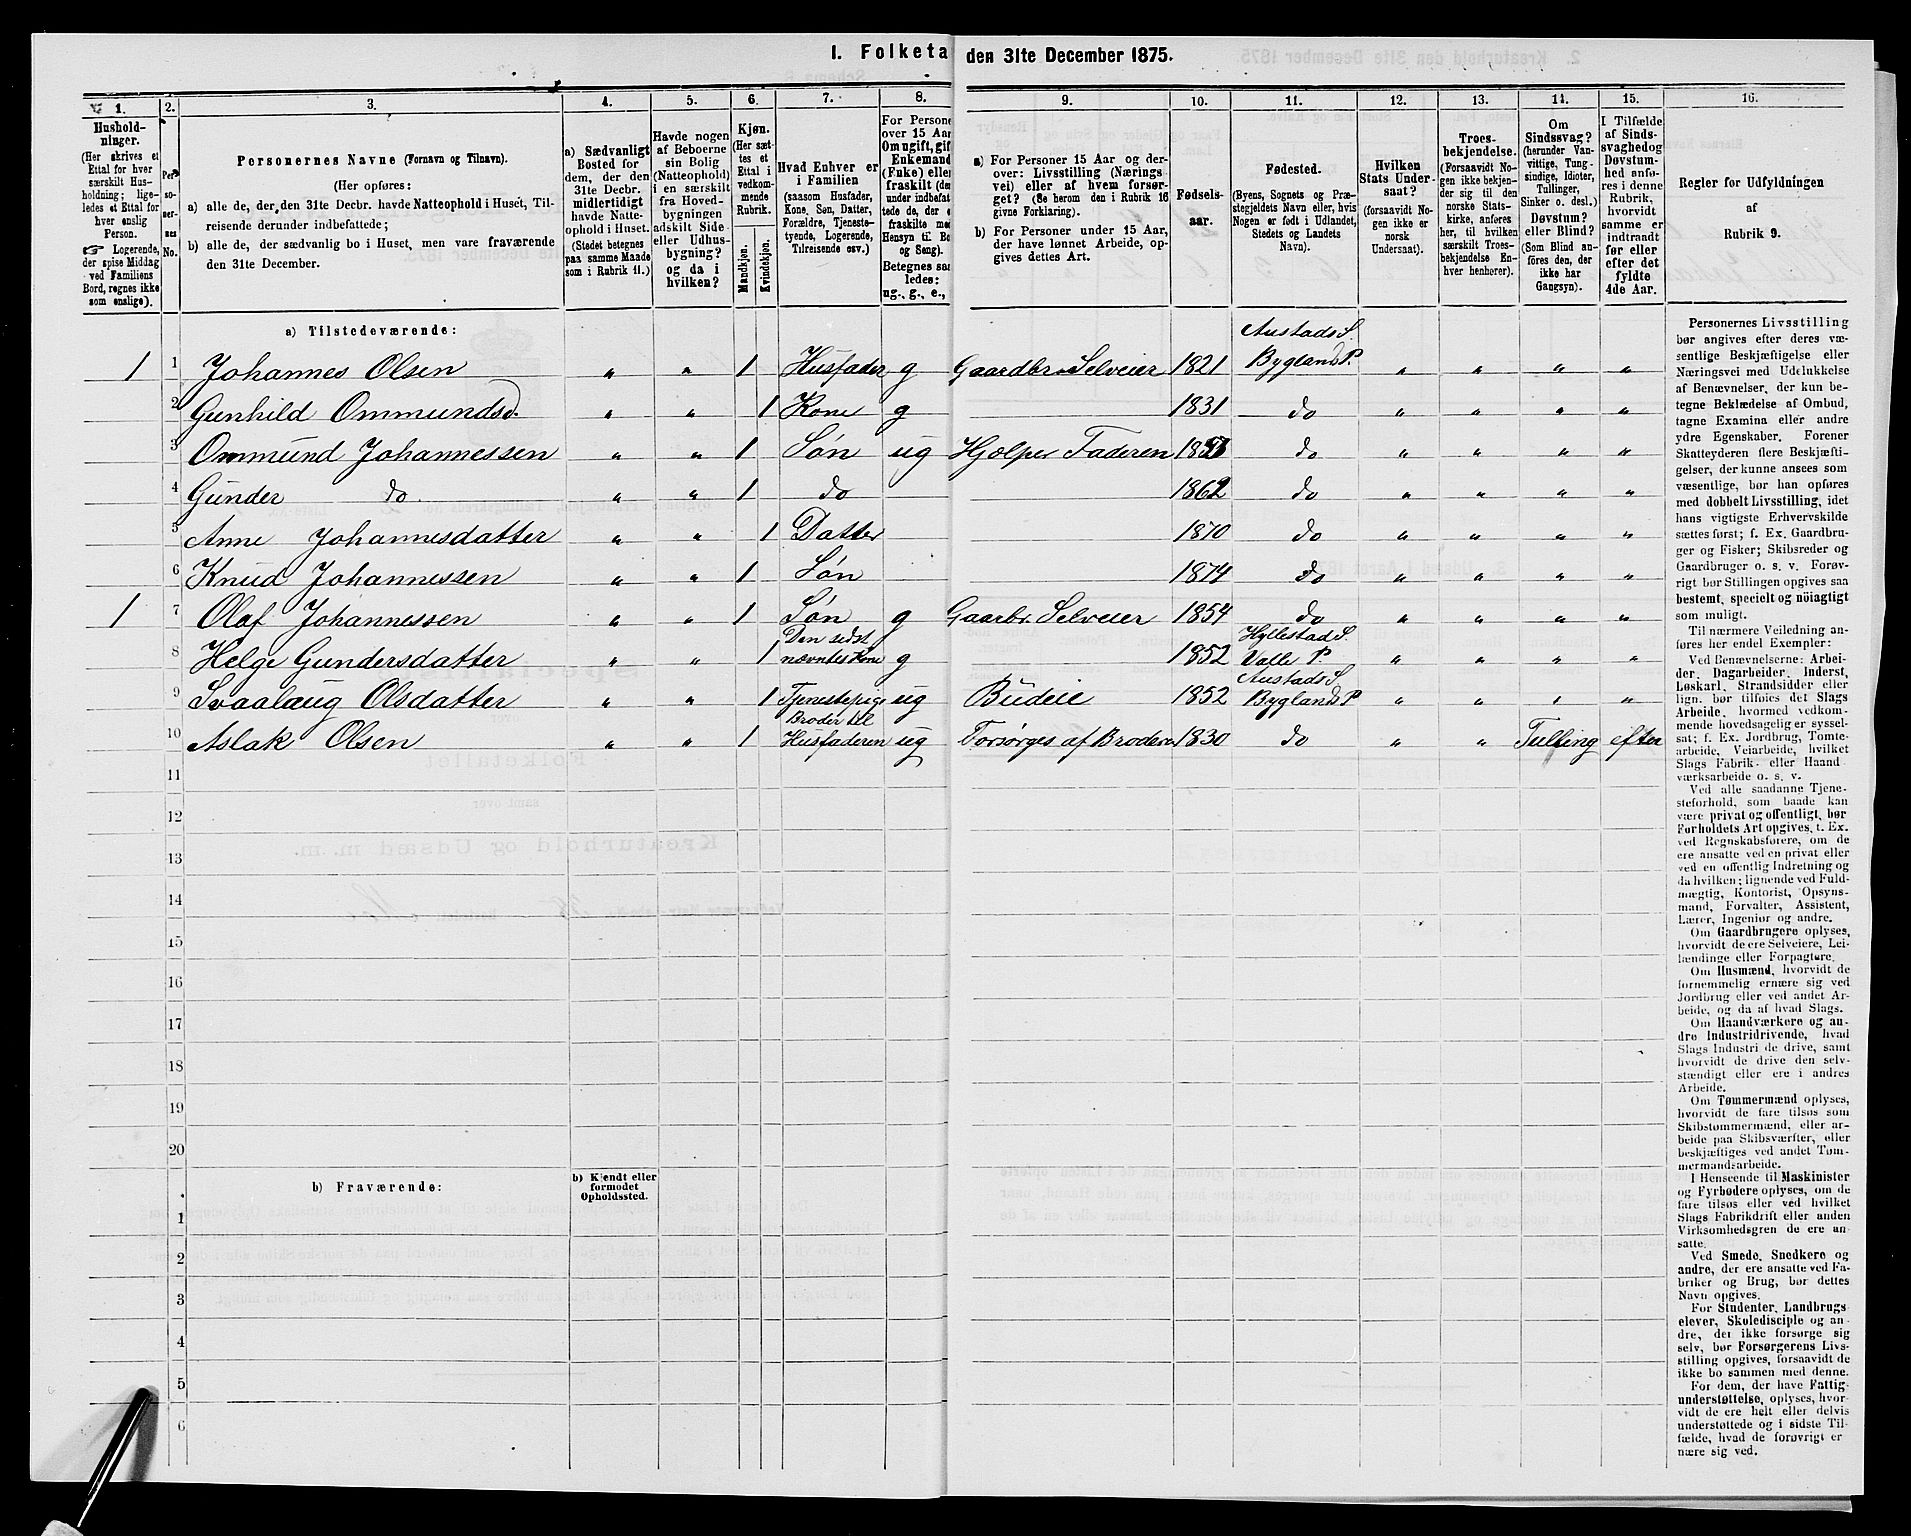 1. Folketa den 31te December 1875.
1. 2. 3. 4. 5. 6. 7. 8. 9. 10. 11. 12. 13. 14. 15. 16.
Hushold-
ninger.
(Her skrives et
Ettal for hver
særskilt Hus-
holdning; lige-
ledes et Ettal for
hver enslig
Person.
☞ Logerende,
der spise Middag
ved Familiens
Bord, regnes ikke
som enslige).
Per-
so-
ner-
nes
No.
Personernes Navne (Fornavn og Tilnavn).
(Her opføres:
a) alle de, der den 31te Decbr. havde Natteophold i Huset, Til-
reisende derunder indbefattede;
b) alle de, der sædvanlig bo i Huset, men vare fraværende
den 31te December.
a) Sædvanligt
Bosted for
dem, der den
31te Decbr.
midlertidigt
havde Natte-
ophold i Huset.
(Stedet betegnes
paa samme Maade
som i Rubrik 11.)
Havde nogen
af Beboerne
sin Bolig
(Natteophold)
i en særskilt
fra Hoved-
bygningen
adskilt Side-
eller Udhus-
bygning?
og da i
hvilken?
Kjøn.
(Her sæt-
tes et
Ettal i
vedkom-
mende
Rubrik.
Mandkjøn.
Kvindekjøn.
Hvad Enhver er
i Familien
(saasom Husfader,
Kone, Søn, Datter,
Forældre, Tjeneste-
tyende, Logerende,
Tilreisende osv.)
For Persone
over 15 Aar
Om ugift, gif
Enkemand
(Enke) elle
fraskilt (de
under indbefat
tede de, der e
fraskilte me
Hensyn til Bo
og Seng).
Betegnes saa
ledes:
ug., g., e.,
a) For Personer 15 Aar og der-
over: Livsstilling (Nærings-
vei) eller af hvem forsør-
get? (Se herom den i Rubrik 16
givne Forklaring).
b) For Personer under 15 Aar,
der have lønnet Arbeide, op-
gives dettes Art.
Fødsels-
aar.
Fødested.
(Byens, Sognets og Præ-
stegjeldets Navn eller, hvis
Nogen er født i Udlandet,
Stedets og Landets
Navn).
Hvilken
Stats Under-
saat?
(forsaavidt No-
gen ikke er
norsk
Undersaat).
Troes-
bekjendelse.
(Forsaavidt No-
gen ikke bekjen-
der sig til den
norske Stats-
kirke, anføres
her, til hvilken
særskilt Troes-
bekjendelse En-
hver henhører).
Om
Sindssvag?
(herunder Van-
vittige, Tung-
sindige, Idioter,
Tullinger,
Sinker o. desl.)
Døvstum?
eller Blind?
(Som Blind an-
føres den, der
ikke har
Gangsyn).
I Tilfælde
af Sinds-
svaghed og
Døvstum-
hed anfø-
res i denne
Rubrik,
hvorvidt
samme er
indtraadt
før eller
efter det
fyldte
4de Aar.
Regler for Udfyldningen
af
Rubrik 9.
a) Tilstedeværende:
1 1 Johannes Olsen „ „ 1 Husfader g Gaardbr. Selveier 1821 Austads S. Bygland P. „ „ „ „
2 Gunhild Ommundsd. „ „ 1 Kone g 1831 do „ „ „ „
3 Ommund Johannessen „ „ 1 Søn ug Hjælper Faderen do „ „ „ „
4 Gunder do „ „ 1 do 1862 do „ „ „ „
5 Anne Johannesdatter „ „ 1 Datter 1870 do „ „ „ „
6 Knud Johannessen „ „ 1 Søn 1874 do „ „ „ „
1 7 Olaf Johannessen „ „ 1 Søn g Gaarbr. Selveier 1854 do „ „ „ „
8 Helge Gundersdatter „ „ 1 Den sidst nævntes Kone g 1852 Hyllestad S. Valle P. „ „ „ „
9 Svaalaug Olsdatter „ „ 1 Tjenestepige ug Budeie 1852 Austads S Bygland P „ „ „ „
10 Aslak Olsen „ „ 1 Broder til Husfaderen ug Forsørges af Broderen 1830 do „ „ Tulling efter
11
12
13
14
15
16
17
18
19
20
b) Fraværende:
b) Kjendt eller
formodet
Opholdssted.
1
2
3
4
5
6
Personernes Livsstilling
bør angives efter deres væ-
sentlige Beskjæftigelse eller
Næringsvei med Udelukkelse
af Benævnelser, der kun be-
tegne Beklædelse af Ombud,
tagne Examina eller andre
ydre Egenskaber. Forener
Skatteyderen flere Beskjæfti-
gelser, der kunne ansees som
væsentlige, bør han opføres
med dobbelt Livsstilling, idet
hans vigtigste Erhvervskilde
sættes først; f. Ex. Gaardbru-
ger og Fisker; Skibsreder og
Gaardbruger o. s. v. Forøv-
rigt bør Stillingen opgives saa
bestemt, specielt og nøiagtigt
som muligt.
Til nærmere Veiledning an-
føres her endel Exempler:
Ved Benævnelserne: Arbei-
der, Dagarbeider, Inderst,
Løskarl, Strandsidder eller
lign. bør tilføies det Slags
Arbeide, hvormed vedkom-
mende hovedsagelig er syssel-
sat; f. Ex. Jordbrug, Tomte-
arbeide, Veiarbeide, hvilket
Slags Fabrik- eller Haand
værksarbeide o. s. v.
Ved alle saadanne Tjene-
steforhold, som baade kan
være privat og offentligt, bør
Forholdets Art opgives, t. Ex.
ved Regnskabsførere, om de
ere ansatte ved en privat eller
ved en offentlig Indretning og
da hvilken; lignende ved Fuld-
mægtig, Kontorist, Opsyns-
mand, Forvalter, Assistent,
Lærer, Ingeniør og andre.
Om Gaardbrugere oplyses,
hvorvidt de ere Selveiere, Lei-
lændinge eller Forpagtere.
Om Husmænd, hvorvidt de
fornemmelig ernære sig ved
Jordbrug eller ved andet Ar-
beide, og da af hvad Slags.
Om Haandværkere og an-
dre Industridrivende, hvad
Slags Industri de drive, samt
hvorvidt de drive den selv-
stændigt eller ere i andres
Arbeide.
Om Tømmermænd oplyses,
hvorvidt de fare tilsøs som
Skibstømmermænd, eller ar-
beide paa Skibsværfter, eller
beskjæftiges ved andet Tøm-
mermandsarbeide.
I Henseende til Maskinister
og Fyrbødere oplyses, om de
fare tilsøs eller ved hvilket
Slags Fabrikdrift eller anden
Virksomhedsgren de ere an-
satte.
Ved Smede, Snedkere og
andre, der ere ansatte ved Fa-
briker og Brug, bør dettes
Navn opgives.
For Studenter, Landbrugs-
elever, Skoledisciple og an-
dre, der ikke forsørge sig
selv, bør Forsørgerens Livs-
stilling opgives, forsaavidt de
ikke bo sammen med denne.
For dem, der have Fattig-
understøttelse, oplyses, hvor-
vidt de ere helt eller delvis
understøttede og i sidste Til-
fælde, hvad de forøvrigt er
nære sig ved.